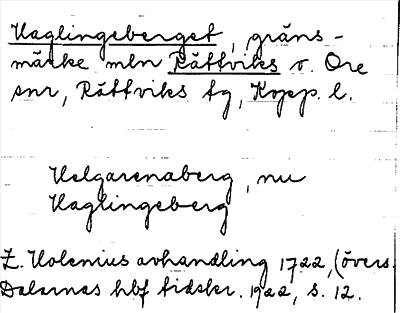 Haglingeberget, gräns-
märke mln Rättviks o. Ore
snr, Rättviks tg, Kopp. l.
Helgarenaberg, nu
Haglingeberg
Z. Holenius avhandling 1722, (övers.
Dalarnas hbf tidskr. 1922, s. 12.